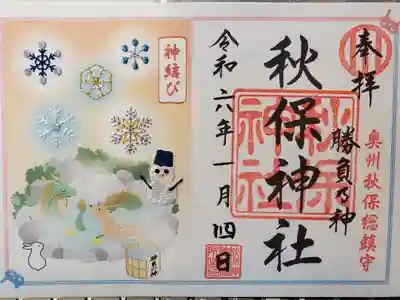 奉拝
奥州秋保総鎮守
勝負乃神
秋保神社
秋保
神社
令和六年一月四日
神結び